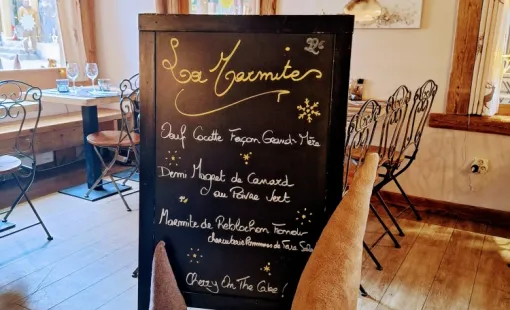 La Marmite
Oeuf Cocotte Façon Grands-Mère
Demi Magret de Canard
au Poivre Vert
Marmite de Reblochon Fondu
charcuterie Pommes de Terre
Cherry On The Cake !